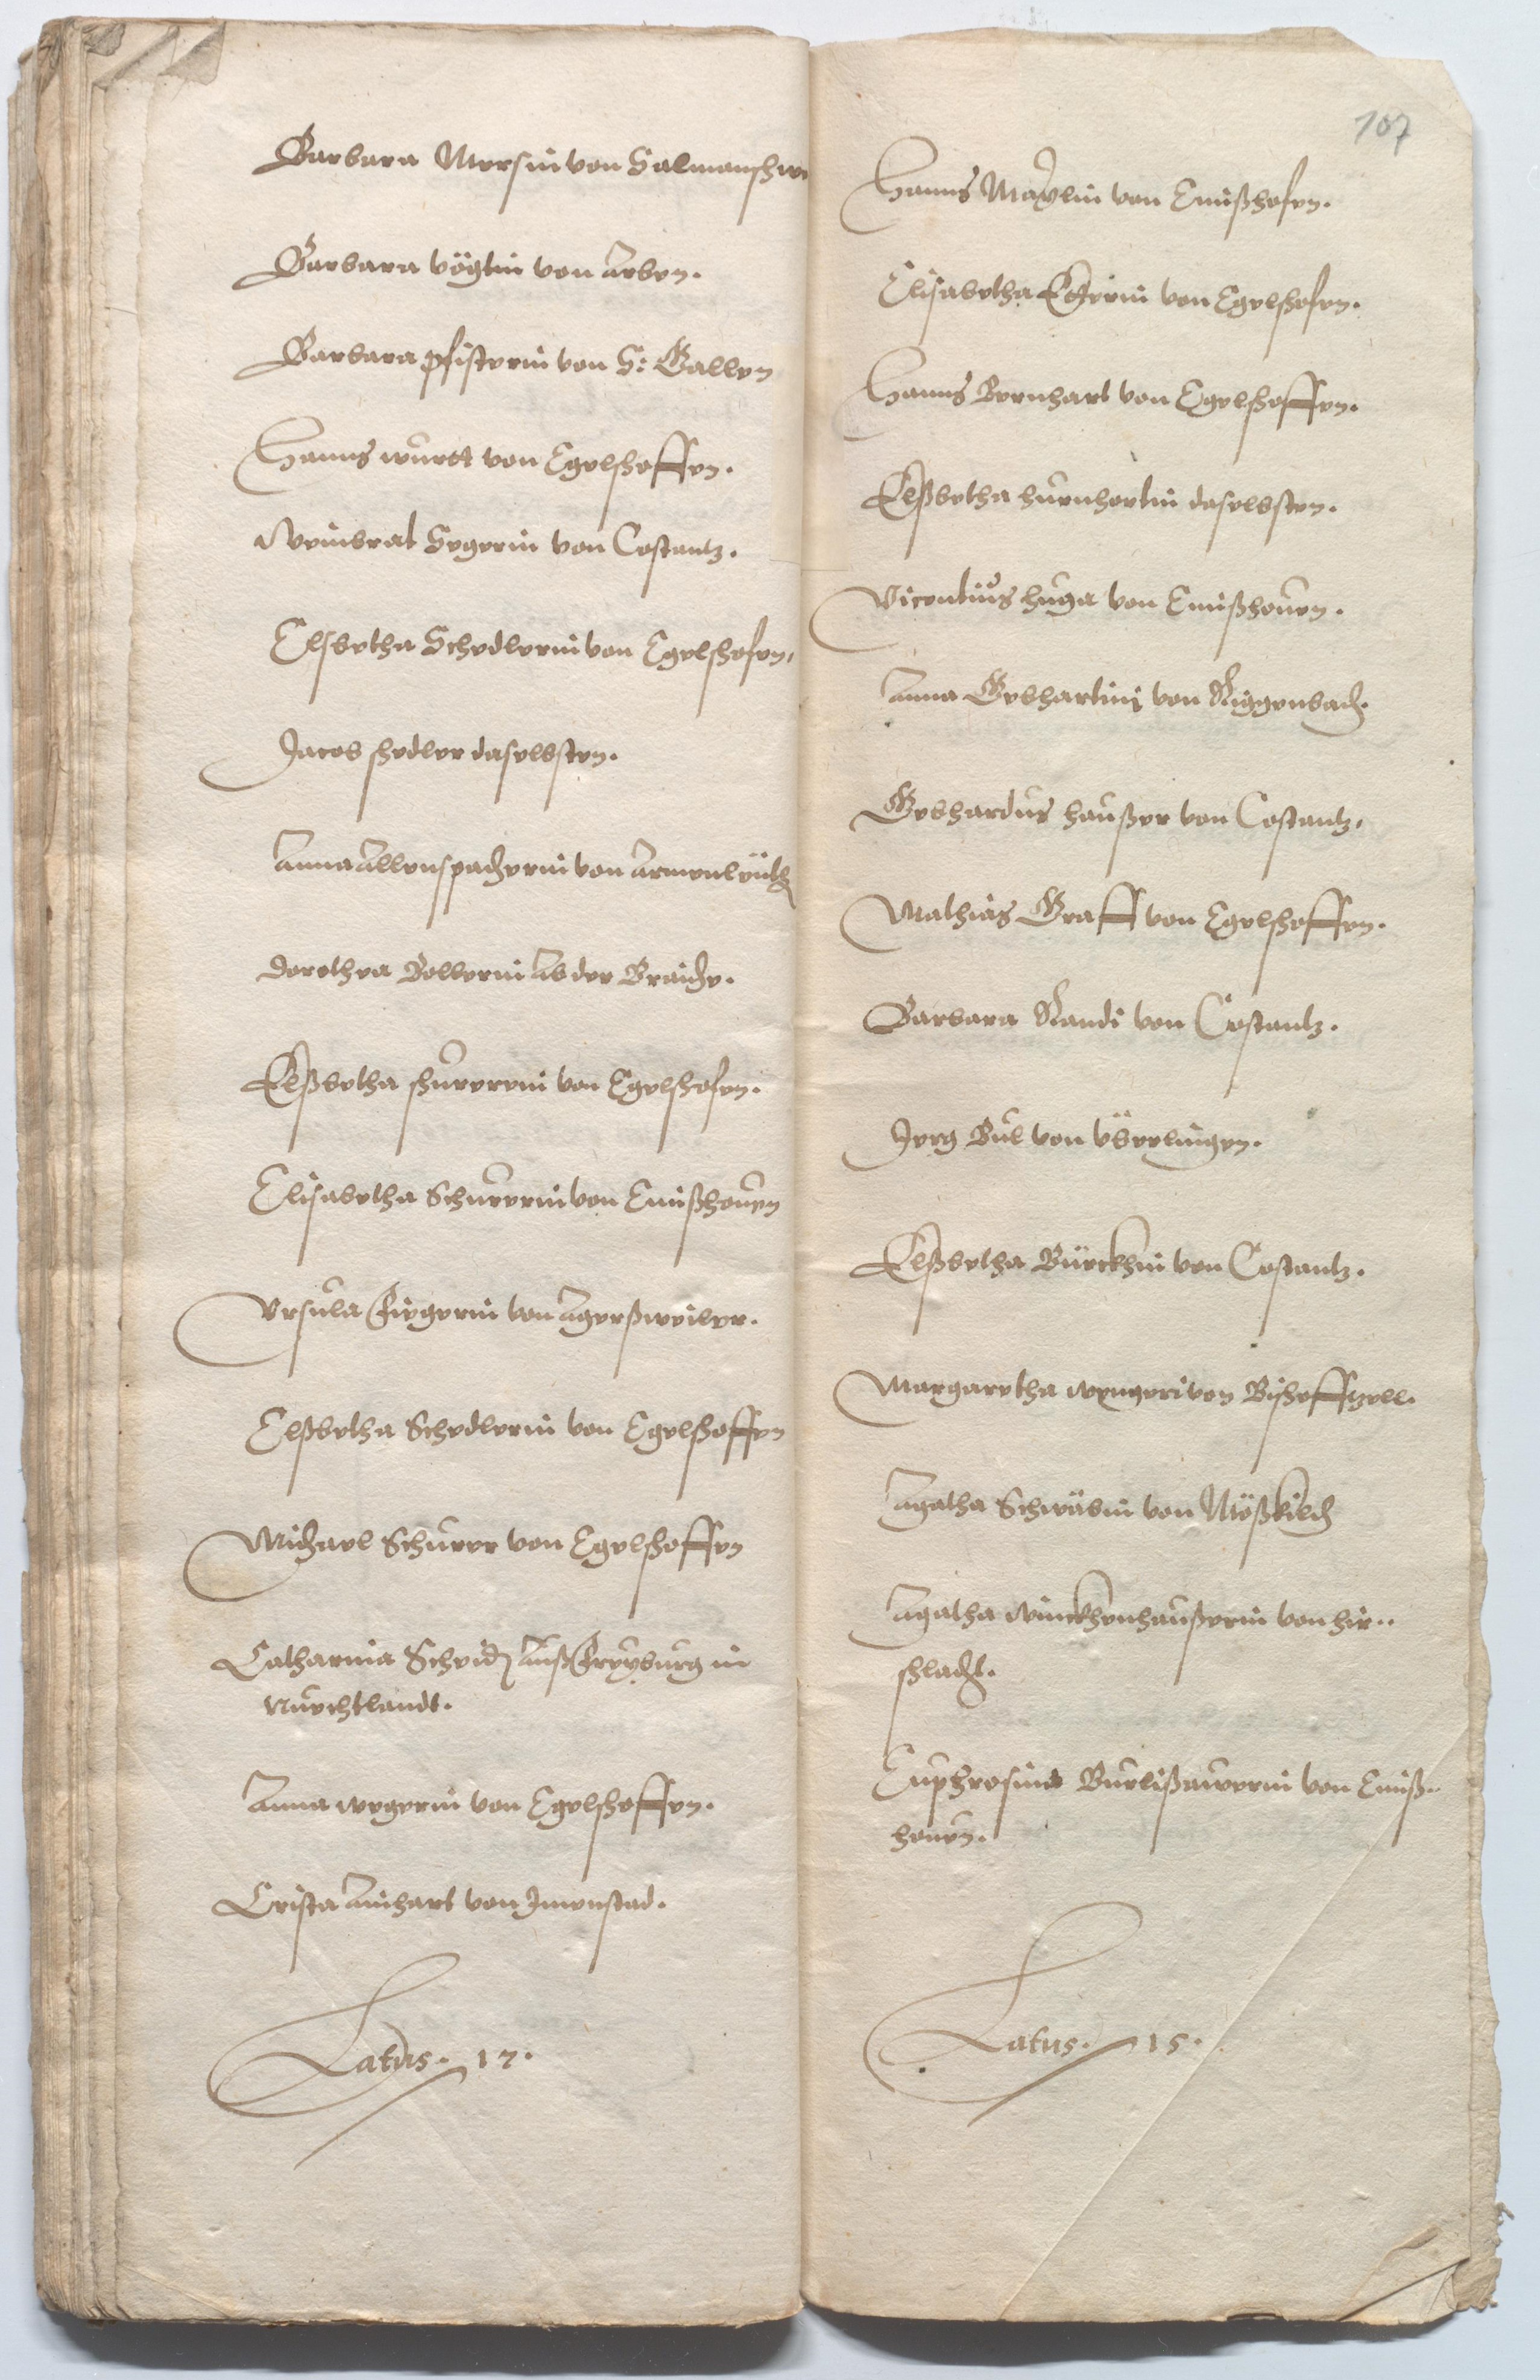 Barbara Mersin von Salmanshwe
Barbara Vöglin von Arben.
Barbara pfisterin von S: Gallen
Hanns wurtt von Egelshoffen.
Weinbrat Segerin von Costantz.
Elsbetha Schedlerin von Egelshofen,
Jacob shedler daselbsten.
Anna Allenspacherin von Armenleüth
Dorothea Bollerin Ab der Braiche.
Elßbetha shurererin von Egelshofen.
Elisabetha Schurerin von Emißhouen
Ursula Fiegerin von Agerßweiler.
Elßbetha Schedlerin von Egelshoffen
Michael Schurer von Egelshoffen
Catharina Scheid Auß Freyburg in
Nuechtlandt.
Anna wegerin von Egelshoffen.
Crista Ainhart von Jmenstad.
Latus. 17.
107
Hanns Maÿlin von Emißhofen.
Elisabetha Eggerin von Egelshofen.
Hanns Bernhart von Egelshoffen.
Elßbetha hurnhertin daselbsten.
Vicentius huga von Emißhouen.
Anna Gebhartini von Riggenbach.
Gebhardus haußer von Costantz.
Mathias Graff von Egelshoffen.
Barbara Randi von Costantz.
Jerg Bul von Überlingen.
Elßbetha Bürckhin von Costantz.
Margaretha wengeri von Bishoffzell.
Agatha Schwäbin von Mößkilch
Agatha Winckhenhaußerin von hir..
shlacht.
Euphrosina Burlißawerin von Emiß..
houen.
Latus. 15.